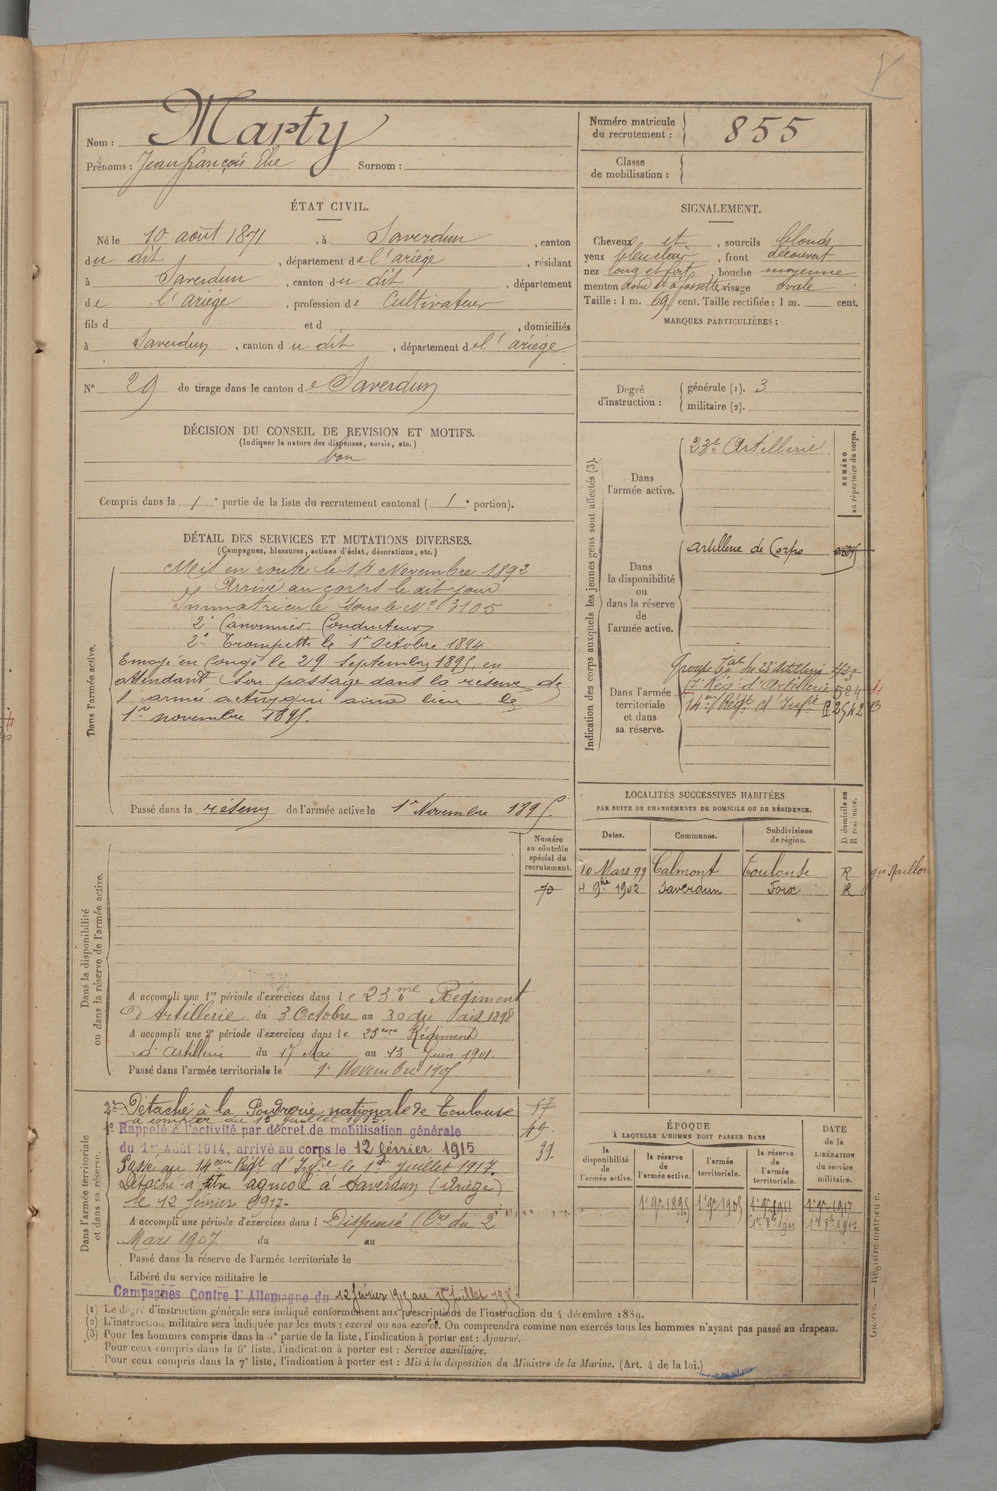 Nom : Marty
Prénoms : Jean françois Elie Surnom :
Numéro matricule
du recrutement : 855
Classe
de mobilisation :
ÉTAT CIVIL.
Né le 10 août 1871, à Saverdun, canton
du dit, département de l'ariège, résidant
à Saverdun, canton du dit, département
de l'ariége, profession de Cultivateur
fils d et d , domiciliés
à Saverdun, canton du dit, département de l'ariége
N° 29 de tirage dans le canton de Saverdun
SIGNALEMENT.
Cheveux et, sourcils blonds
yeux bleu clair, front découvert
nez long et fort, bouche moyenne
menton rond et à fossette, visage ovale
Taille : 1 m. 69 cent. Taille rectifiée : 1 m. cent.
MARQUES PARTICULIÈRES :
Degré
d'instruction :
générale (1). 3
militaire (2).
DÉCISION DU CONSEIL DE REVISION ET MOTIFS.
(Indiquer la nature des dispenses, sursis, etc.)
bon
Compris dans la 1e partie de la liste du recrutement cantonal (1e portion).
DÉTAIL DES SERVICES ET MUTATIONS DIVERSES.
(Campagnes, blessures, actions d'éclat, décorations, etc.)
Dans l'armée active.
Mis en route le 14 Novembre 1892
Arrivé au corps le dit jour
Immatriculé sous le N° 3105
2e Canonnier Conducteur
2e Trompette le 1er Octobre 1894
Envoyé en congé le 29 Septembre 1895 en
attendant son passage dans la réserve de
l'armée active qui aura lieu le
1er novembre 1895.
Passé dans la réserve de l'armée active le 1er Novembre 1895.
Indication des corps auxquels les jeunes gens sont affectés (3).
NUMÉRO
au répertoire du corps.
Dans
l'armée active.
23e Artillerie
Dans
la disponibilité
ou
dans la réserve
de
l'armée active.
artillerie de Corps
Dans l'armée
territoriale
et dans
sa réserve.
Groupe tal du 23e Artillerie
17e Rég. d'Artillerie 524
14me Régt d'Infie 2542
LOCALITÉS SUCCESSIVES HABITÉES
PAR SUITE DE CHANGEMENTS DE DOMICILE OU DE RÉSIDENCE.
D domicile ou
R résidence.
Dates. Communes. Subdivisions
de région.
10 Mars 99 Calmont Toulouse R
4 9bre 1902 Saverdun Foix R
Numéro
au contrôle
spécial du
recrutement.
70
Dans la disponibilité
ou dans la réserve de l'armée active.
A accompli une 1re période d'exercices dans le 23me Régiment
d'Artillerie du 3 Octobre au 30 du dit 1898
A accompli une 2e période d'exercices dans le 23eme Régiment
d'artillerie du 17 Mai au 13 Juin 1901.
Passé dans l'armée territoriale le 1er Novembre 1905
Dans l'armée territoriale
et dans sa réserve.
2° Détaché à la Poudrerie nationale de Toulouse 57
à compter du 15 juillet 1915.
1° Rappelé à l'activité par décret de mobilisation générale
du 1er Août 1914, arrivé au corps le 12 février 1915 39.
Passé au 14eme Régt d'Infie le 1er Juillet 1917.
Détaché à titre agricole à Saverdun (Ariège)
le 12 février 1917.
A accompli une période d'exercices dans l Dispensé
Mars 1907 du au
Passé dans la réserve de l'armée territoriale le
Libéré du service militaire le
Campagnes Contre l'Allemagne du 12 février 1915 au 15 juillet 1915
ÉPOQUE
À LAQUELLE L'HOMME DOIT PASSER DANS
DATE
de la
LIBÉRATION
du service
militaire.
la
disponibilité
de
l'armée active.
la réserve
de
l'armée active.
l'armée
territoriale.
la réserve
de
l'armée
territoriale.
1er 9bre 1895 1er 9bre 1905 1er 9bre 1911 1er 9bre 1917
1er 8bre 1911 1er 8bre 1917
(1) Le degré d'instruction générale sera indiqué conformément aux prescriptions de l'instruction du 4 décembre 1889.
(2) L'instruction militaire sera indiquée par les mots : exercé ou non exercé. On comprendra comme non exercés tous les hommes n'ayant pas passé au drapeau.
(3) Pour les hommes compris dans la 3e partie de la liste, l'indication à porter est : Ajourné.
Pour ceux compris dans la 6e liste, l'indication à porter est : Service auxiliaire.
Pour ceux compris dans la 7e liste, l'indication à porter est : Mis à la disposition du Ministre de la Marine. (Art. 4 de la loi.)
Registre matricule.